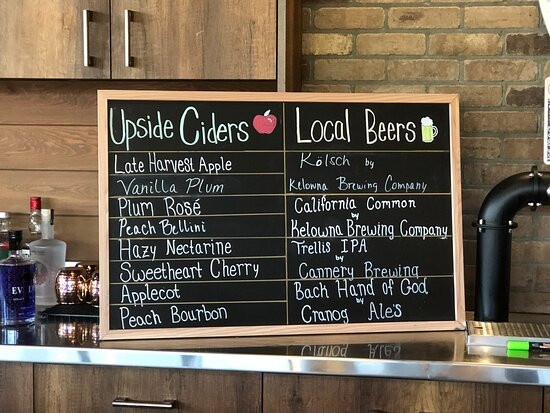 Upside Ciders
Late Harvest Apple
Vanilla Plum
Plum Rosé
Peach Bellini
Hazy Nectarine
Sweetheart Cherry
Applecot
Peach Bourbon
Local Beers
Kölsch by
Kelowna Brewing Company
California Common
by
Kelowna Brewing Company
Trellis IPA
by
Cannery Brewing
Back Hand of God
by
Cranog Ale's